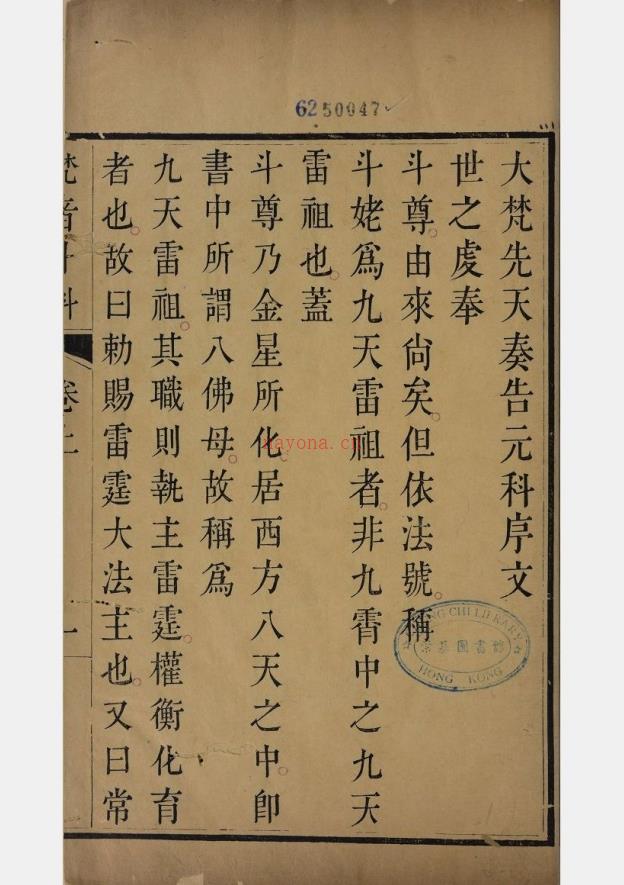 6250047
大梵先天奏告元科序文
世之虔奉
斗尊。由來尙矣。但依法號。稱
斗姥爲九天雷祖者。非九霄中之九天
雷祖也。蓋
斗尊乃金星所化。居西方八天之中。卽
書中所謂八佛母。故稱爲
九天雷祖。其職則執主雷霆。權衡化育
者也。故曰勅賜雷霆大法主也。又曰常
梵音斗科
卷上
一
CHI LIBRARY
宗基圖書館
HONG KONG
nayona.cn